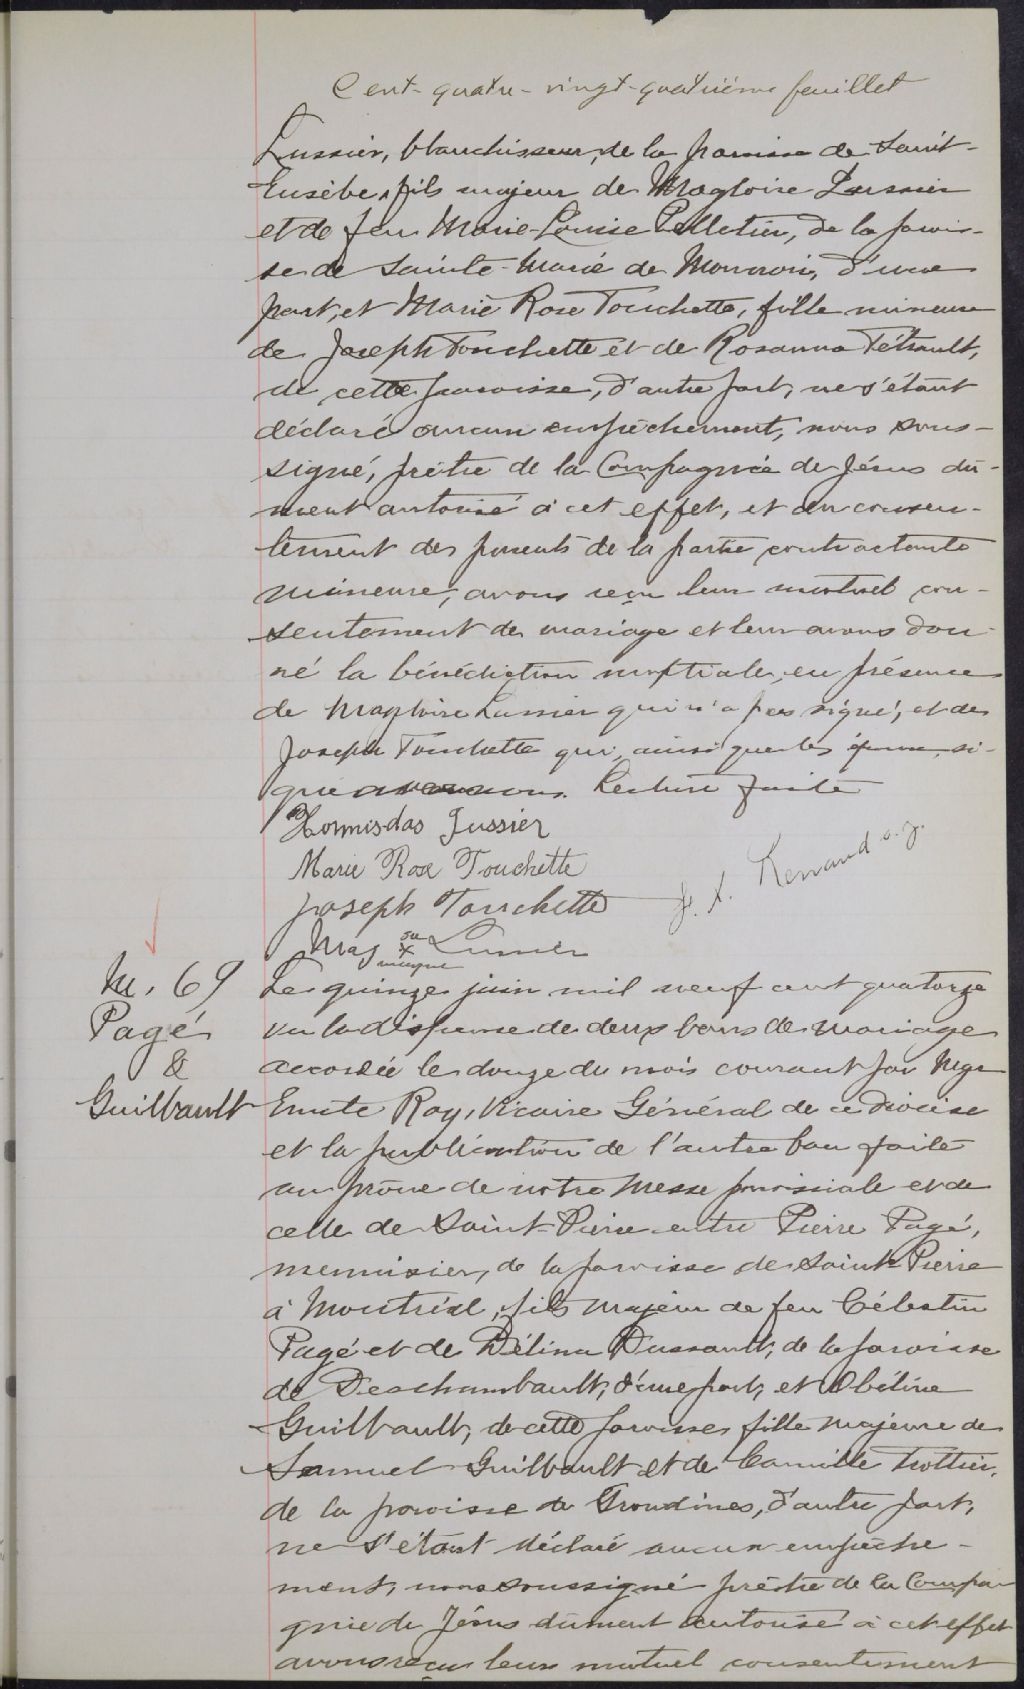 Cent-quatre-vingt-quatrième feuillet
Lussier, blanchisseur, de la paroisse de Saint-
Eusèbe, fils majeur de Magloire Lussier
et de feu Marie-Louise Pelletier, de la parois-
se de Sainte-Marie de Monnoir, d'une
part, et Marie Rose Touchette, fille mineure
de Joseph Touchette et de Rosanna Tétrault,
de cette paroisse, d'autre part, ne s'étant
déclaré aucun empêchement, nous sous-
signé, prêtre de la Compagnie de Jésus dû-
ment autorisé à cet effet, et du consen-
tement des parents de la partie contractante
mineure, avons reçu leur mutuel con-
sentement de mariage et leur avons don-
né la bénédiction nuptiale, en présence
de Magloire Lussier qui n'a pas signé, et de
Joseph Touchette qui, ainsi que les époux, si-
gné avec nous. Lecture faite
Hormisdas Lussier
Marie Rose Touchette
Joseph Touchette
F. X. Renaud s.j.
Mag sa x marque Lussier
M. 69
Pagé
&
Guilbault
Le quinze juin mil neuf cent quatorze
vu la dispense de deux bans de mariage
accordée le douze du mois courant par Mgr
Emile Roy, Vicaire Général de ce diocèse
et la publication de l'autre ban faite
au prône de notre Messe paroissiale et de
celle de Saint-Pierre entre Pierre Pagé,
menuisier, de la paroisse de Saint-Pierre
à Montréal, fils majeur de feu Célestin
Pagé et de Délina Dussault, de la paroisse
de Deschambault, d'une part, et Obéline
Guilbault, de cette paroisse, fille majeure de
Samuel Guilbault et de Camille Trottier,
de la paroisse de Grondines, d'autre part,
ne s'étant déclaré aucun empêche-
ment, nous soussigné prêtre de la Compa-
gnie de Jésus dûment autorisé à cet effet
avons reçu leur mutuel consentement